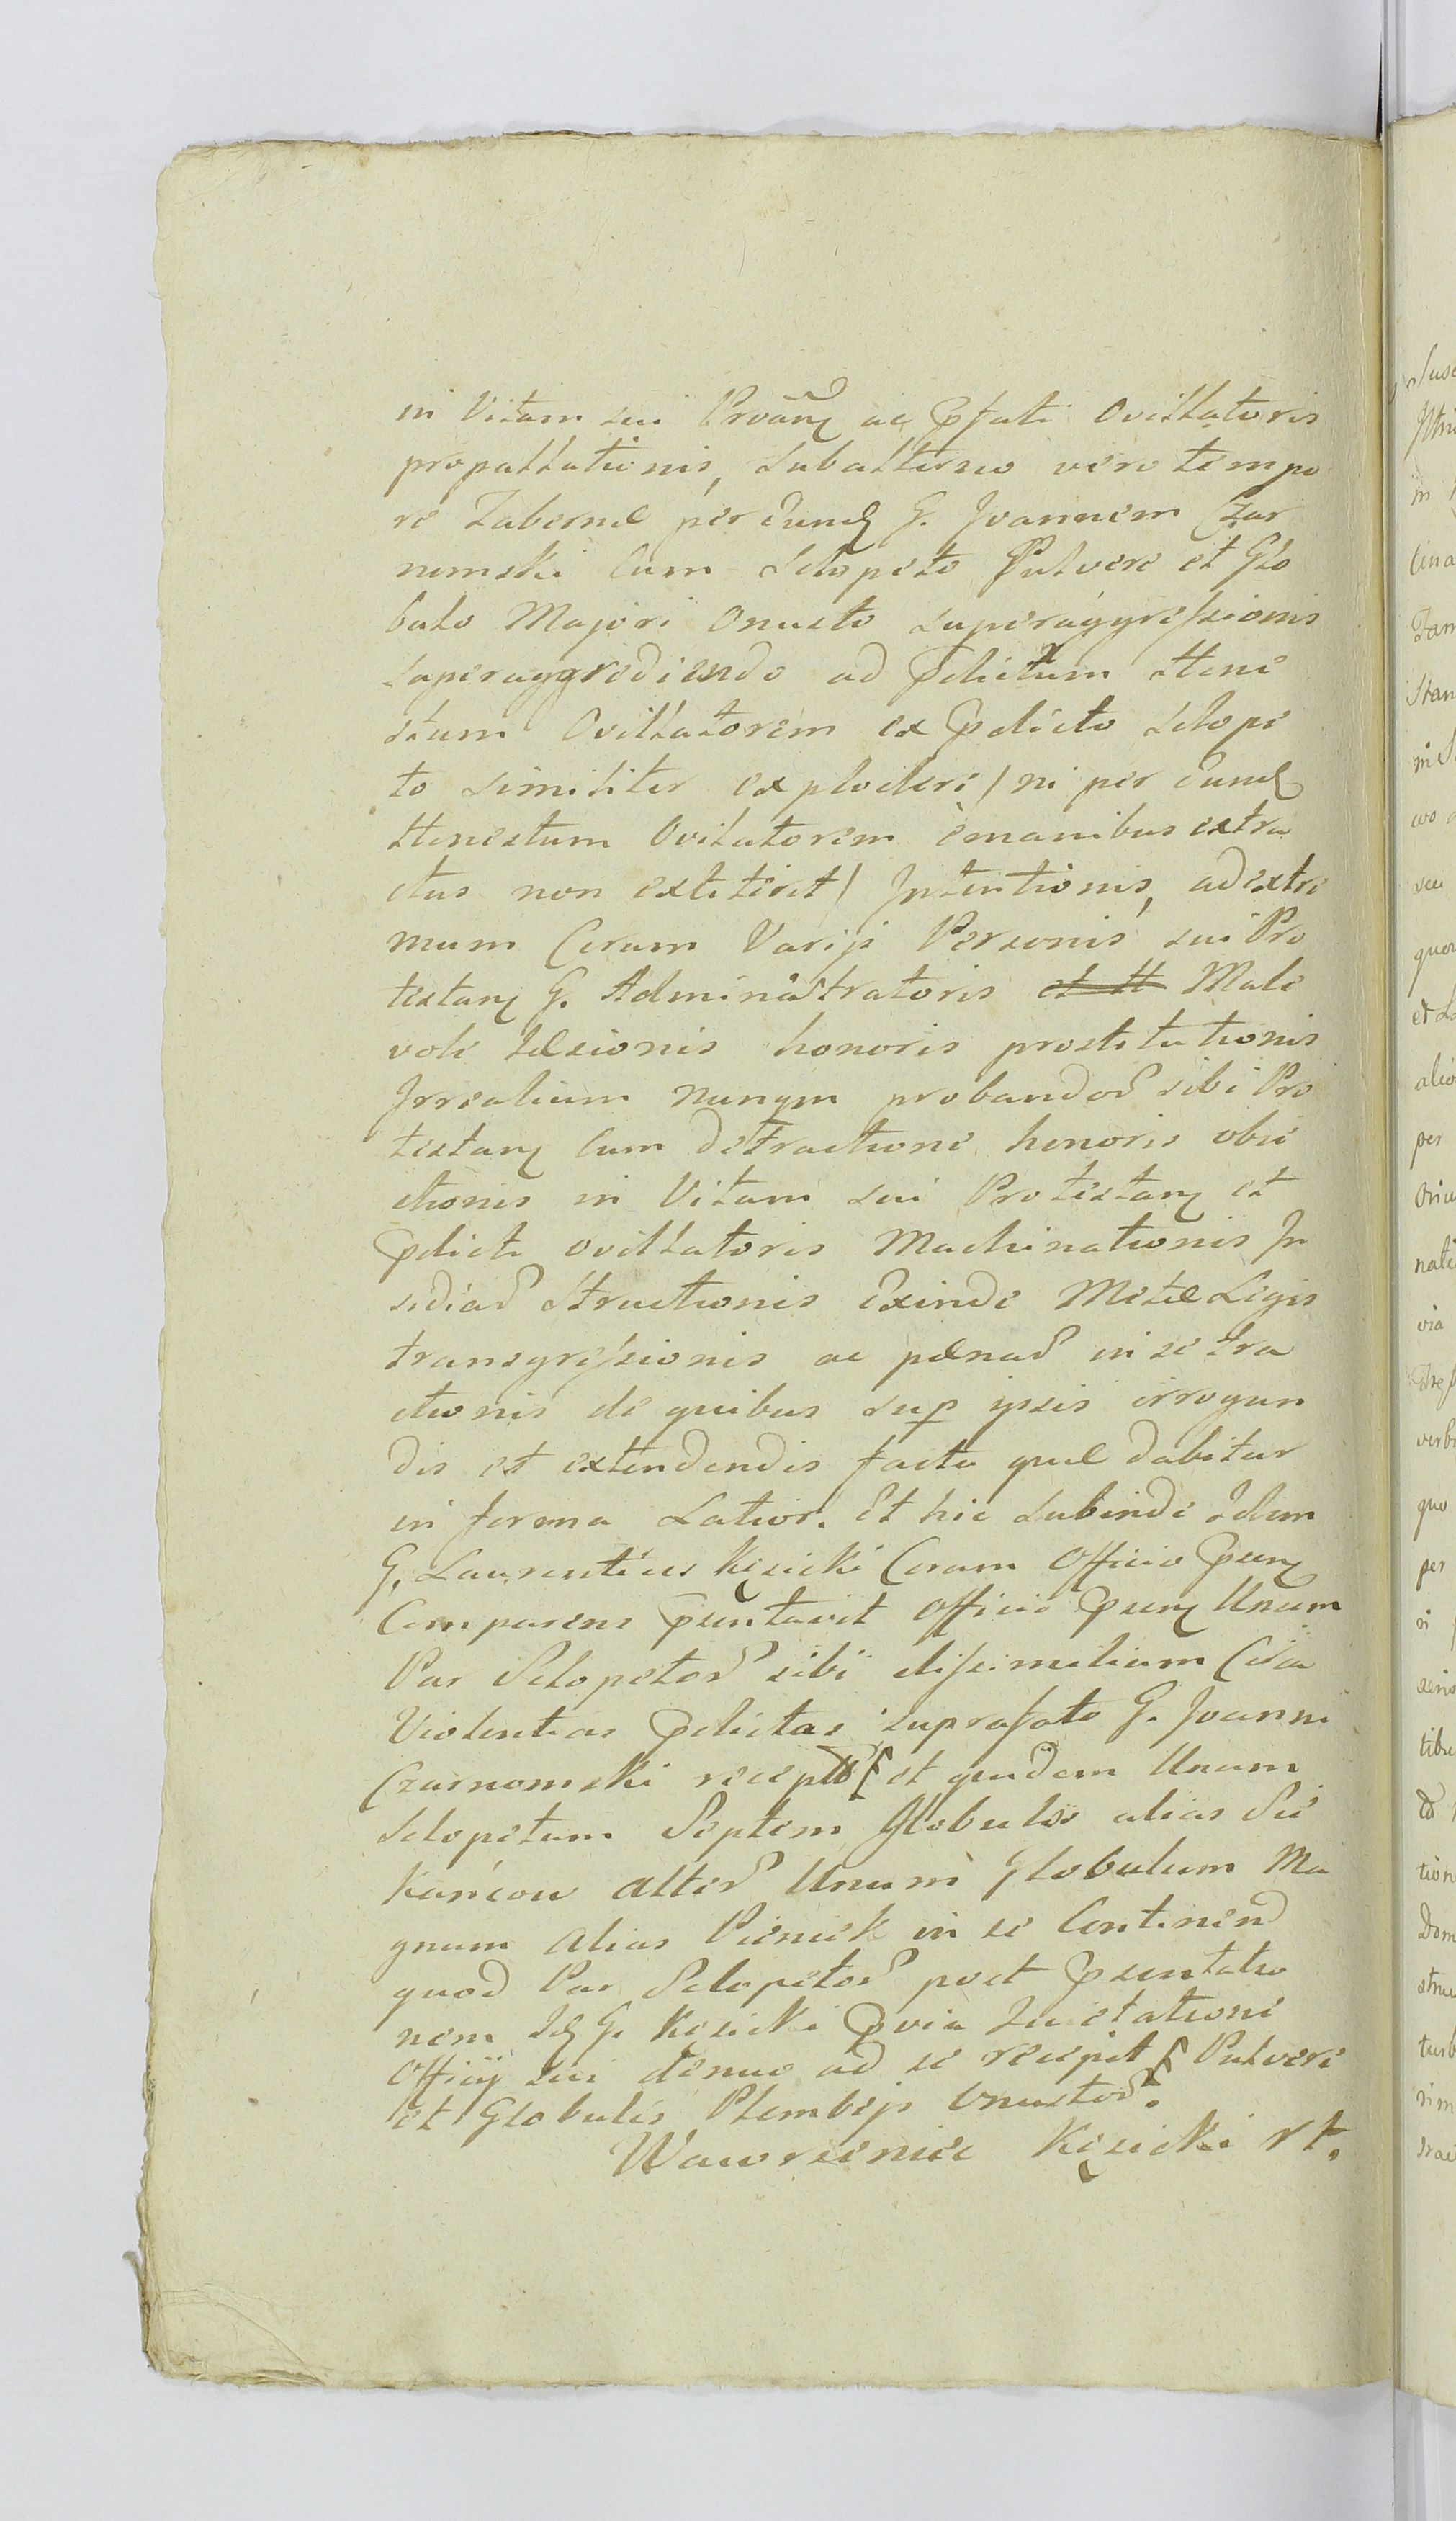 in Vitam sui Protãnȝ ac Pfati Ovillatoris
propallationis, subalterno vero tempo
re Tabernæ per Eundȝ G. Joannem Czar
nomski Cum Sclopeto Pulvere et Glo
bulo Majori Onusto superaggressionis
superaggrediendo ad Pdictum Hone
stum Ovillatorem ex Pdicto Sclope
to similiter explodere / ni per Eundȝ
Honestum Ovilatorem e manibus extra
ctus non extiterit / Intentionis, ad extre
mum Coram Varijs Personis sui Pro
testanȝ G. Administratoris et H Male
voli Læsionis honoris prostitutionis
Irrealium nunqm probandor sibi Pro
testanȝ Cum detractione honoris obie
ctionis in Vitam sui Protestanȝ et
Pdicti ovillatoris Machinationis In
sidiar Structionis Exinde Metæ Legis
transgressionis ac pœnar in se tra
ctionis de quibus sup ipsis irrogan
dis et extendendis facta quæ dabitur
in forma Latior. Et hic subinde Idem
G. Laurentius Kęsicki Coram Officio Psenȝ
Comparens Psentavit Officio Psenȝ Unum
Par Sclopetor sibi dissimilium Circa
Violentias Pdictas suprafato G. Joanni
Czarnomski recept et quidem Unum
Sclopetum Septem Globulos alias Sie
kańcow alter Unum Globulum Ma
gnum alias Pieniek in se Continend
quod Par Sclopetor post Psentatio
nem Idȝ G. Kęsicki Pvia Quietatione
Officij sui denuo ad se recepit Pulvere
et Globulis Plembejs Onustor.
Wawrzeniec Kęsicki